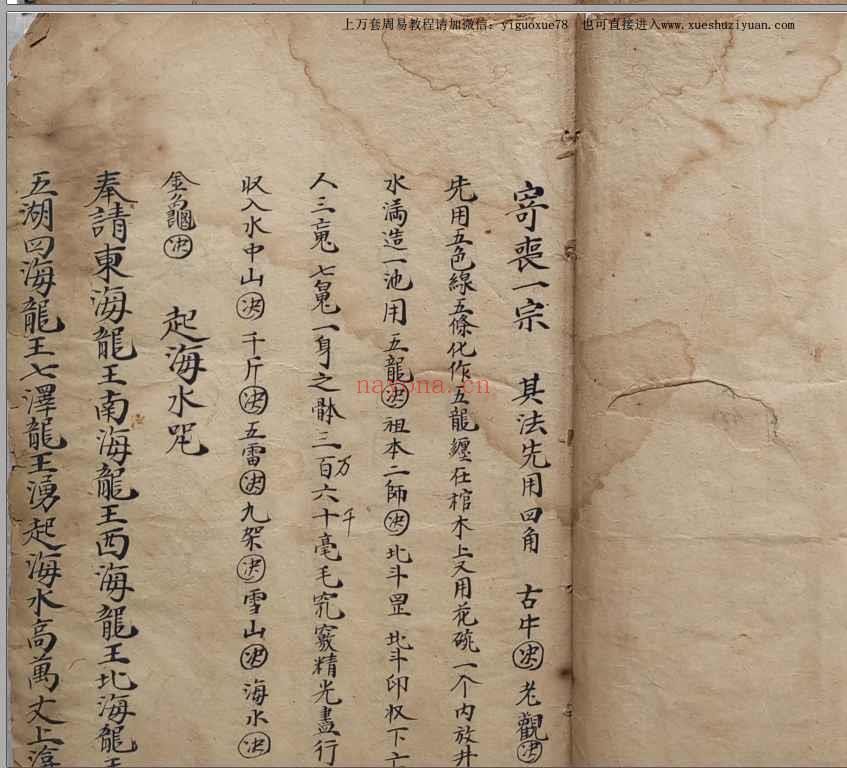 上万套周易教程请加微信：yiguoxue78 也可直接进入www.xueshuziyuan.com
寄喪一宗 其法先用四角 古牛决 老觀决
先用五色線五條化作五龍纏在棺木上又用花碗一个内放井
水满造一池用五龍决祖本二師决北斗罡北斗印收下亡
人三魂七魄一身之骵三百万六十千毫毛宂竅精光盡行
收入水中山决千斤决五雷决九架决雪山决海水决
金龜决 起海水咒
奉請東海龍王南海龍王西海龍王北海龍王
五湖四海龍王七澤龍王湧起海水高萬丈上海
nayona.cn